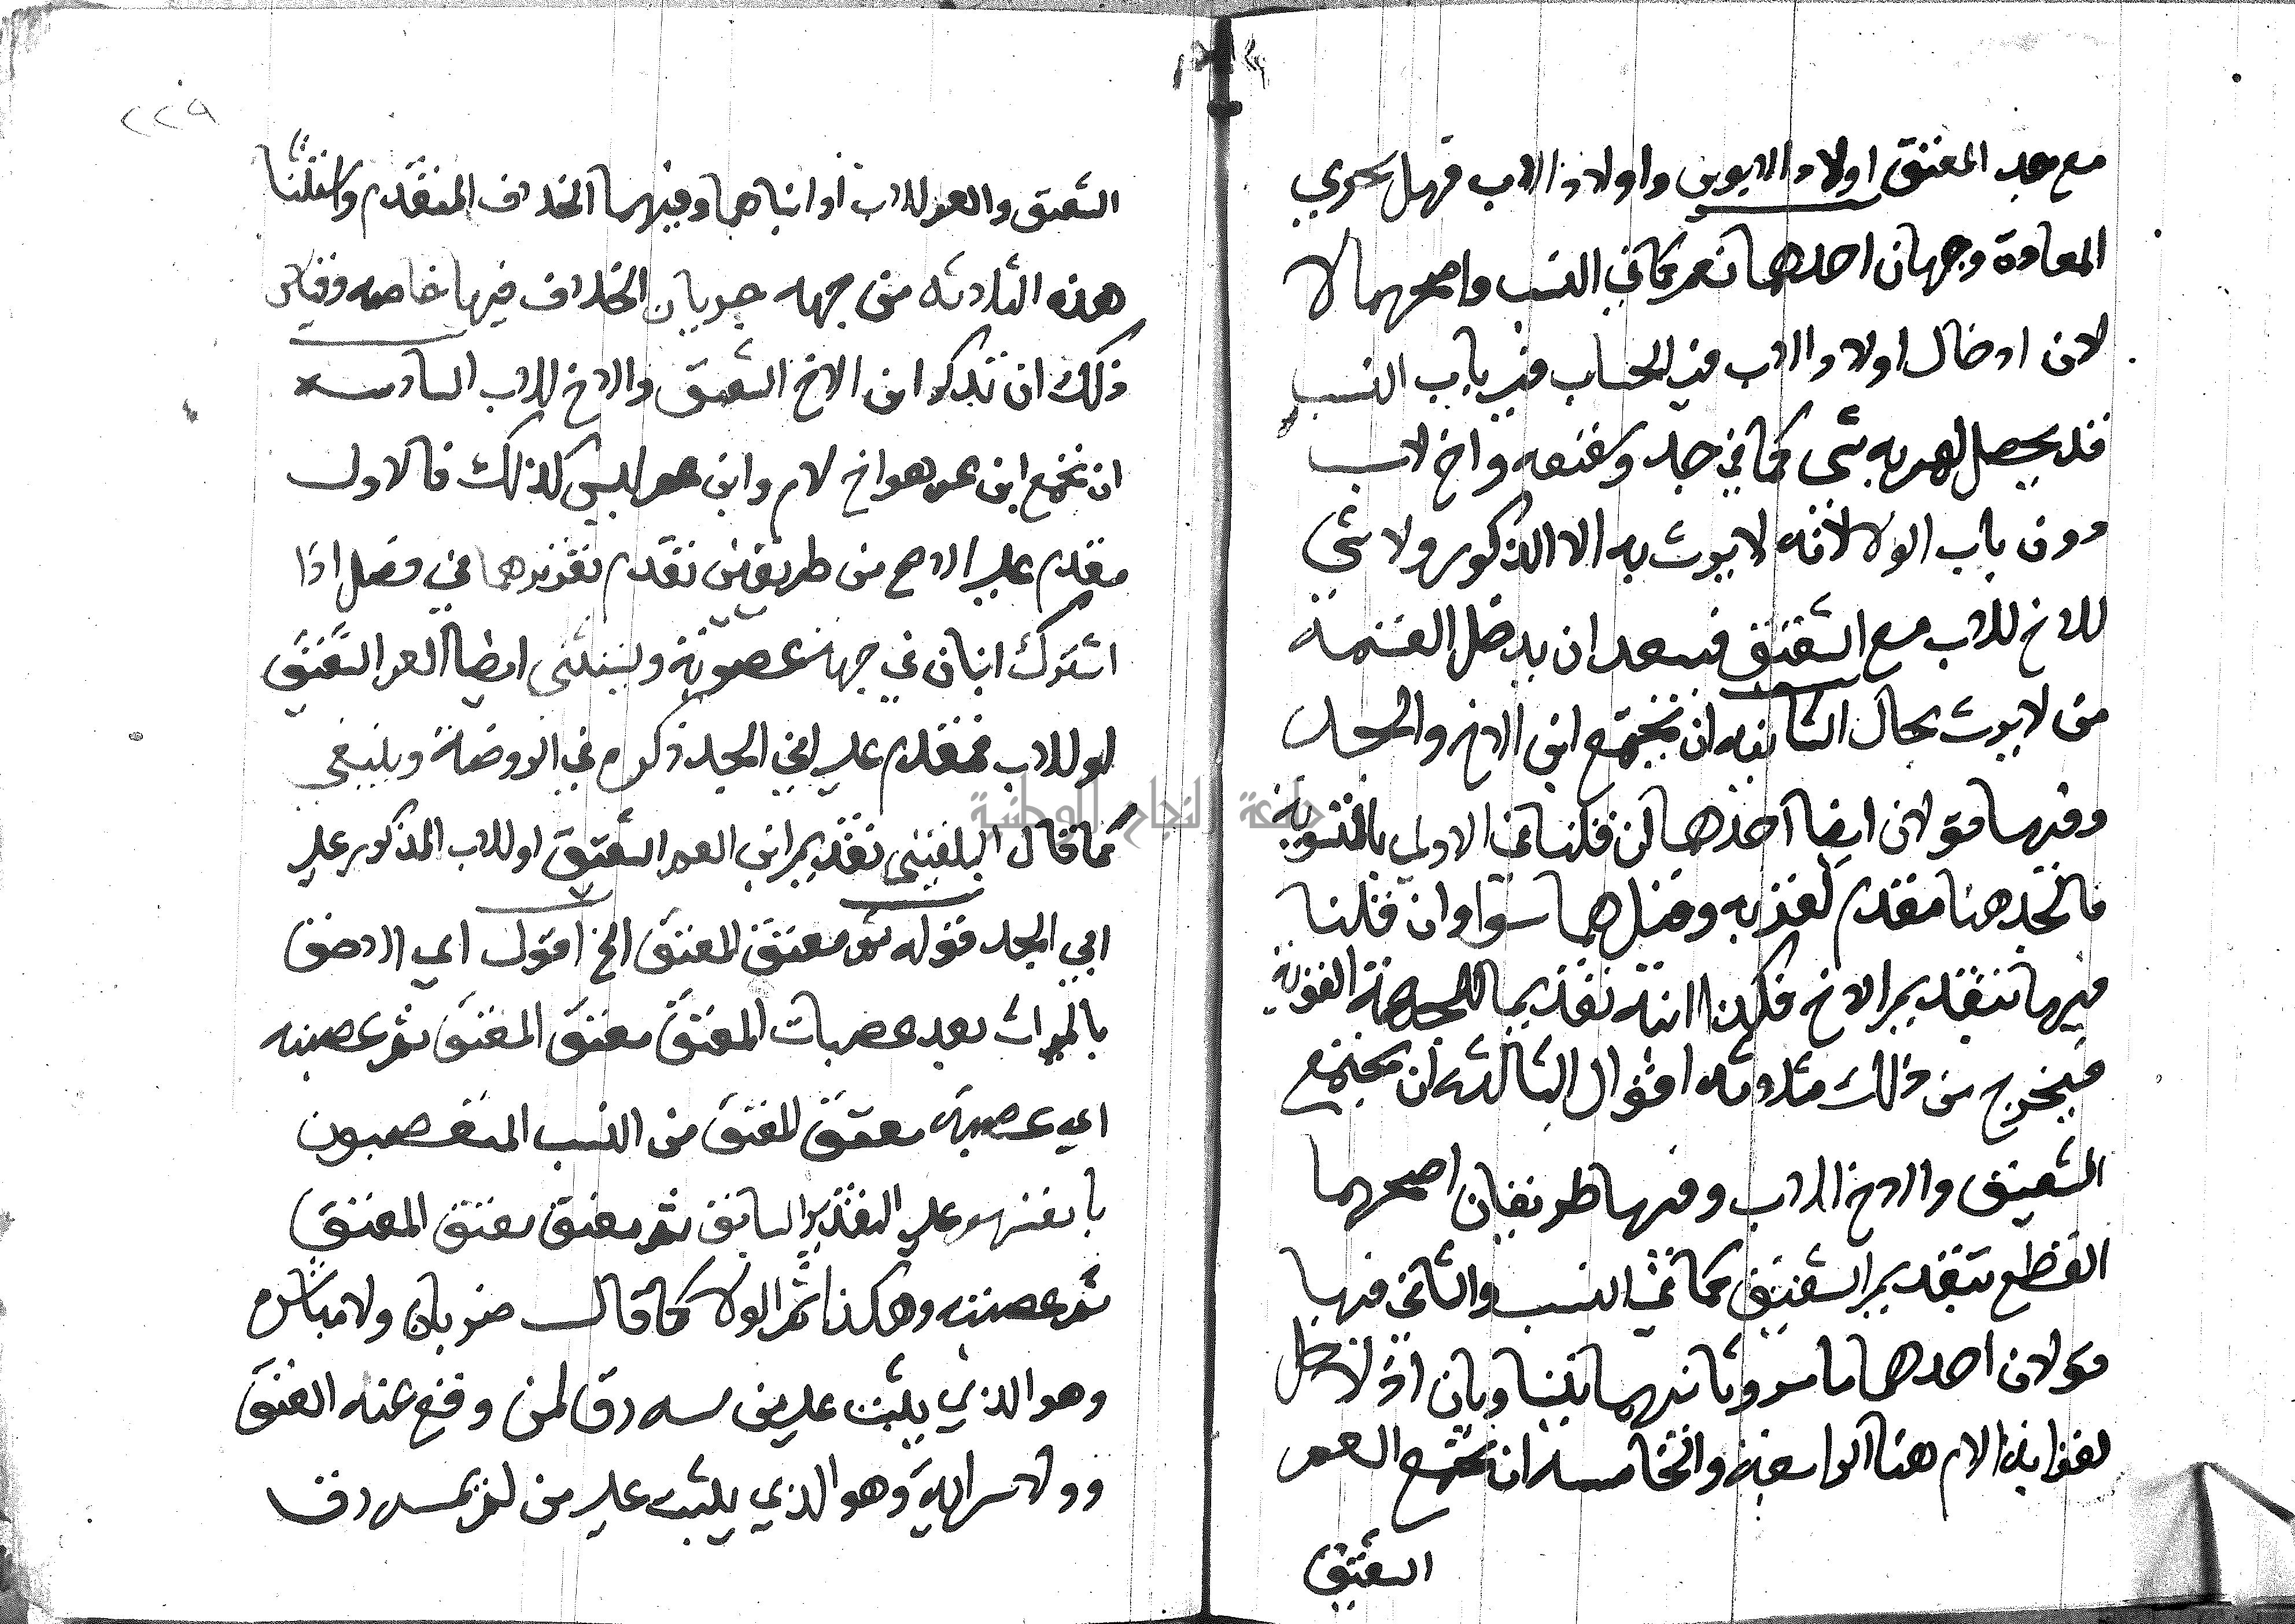 مع جد المعتق اولاد الابوين واولاد الاب فهل تجري
المعادة وجهان احدهما نعم كما في النسب واصحهما لا
لان ادخال اولاد الاب في الحساب في باب النسب
قد يحصل لهم به شي كما في جد وشقيقه واخ لاب
دون باب الولا لانه لا يورث به الا الذكور ولا شي
للاخ للاب مع الشقيق فيبعد ان يدخل القسمة
من لا يورث بحال الثانيه ان يجتمع ابن الاخ والجد
وفيها قولان ايضا احدهما ان قلنا في الاولي بالتسوية
فالجد هنا مقدم لقربه وقيل هما سوا وان قلنا
فيها بتقديم الاخ فكذا ابنه تقديما للجهة القوية
فيخرج من ذلك ثلاثه اقوال الثالثه ان يجتمع
الشقيق والاخ للاب وفيها طريقان اصحهما
القطع بتقديم الشقيق كما في النسب والثاني فيها
قولان احدهما ما مر وثانيهما يستويان اذ لا دخل
لقرابة الام هنا الرابعة والخامسه ان يجتمع العم
الشقيق
٢٢٩
الشقيق والعم للاب او ابناهما وفيهما الخلاف المتقدم واستثنا
هذه الثلاثه من جهه جريان الخلاف فيها خاصه وقياس
ذلك ان تذكر ابن الاخ الشقيق والاخ للاب السادسه
ان يجتمع ابن عم هو اخ لام وابن عم ليس كذلك فالاول
مقدم علي الاصح من طريقين تقدم تقريرهما في فصل اذا
اشترك اثنان في جهة عصوبة ويستثني ايضا العم الشقيق
او للاب فمقدم علي ابي الجد ذكره في الروضة وينبغي
كما قال البلقيني تقديم ابن العم الشقيق او للاب المذكور علي
ابي الجد قوله ثم معتق المعتق الخ اقول اي الاحق
بالميراث بعد عصبات المعتق معتق المعتق ثم عصبته
اي عصبة معتق المعتق من النسب المتعصبون
بانفسهم علي التقدير السابق ثم معتق معتق المعتق
ثم عصبته وهكذا ثم الولا كما قال ضربان ولا مباشره
وهو الذي يثبت علي من مسه رق لمن وقع عنه العتق
وولا سراية وهو الذي يثبت علي من لم يمسه رق